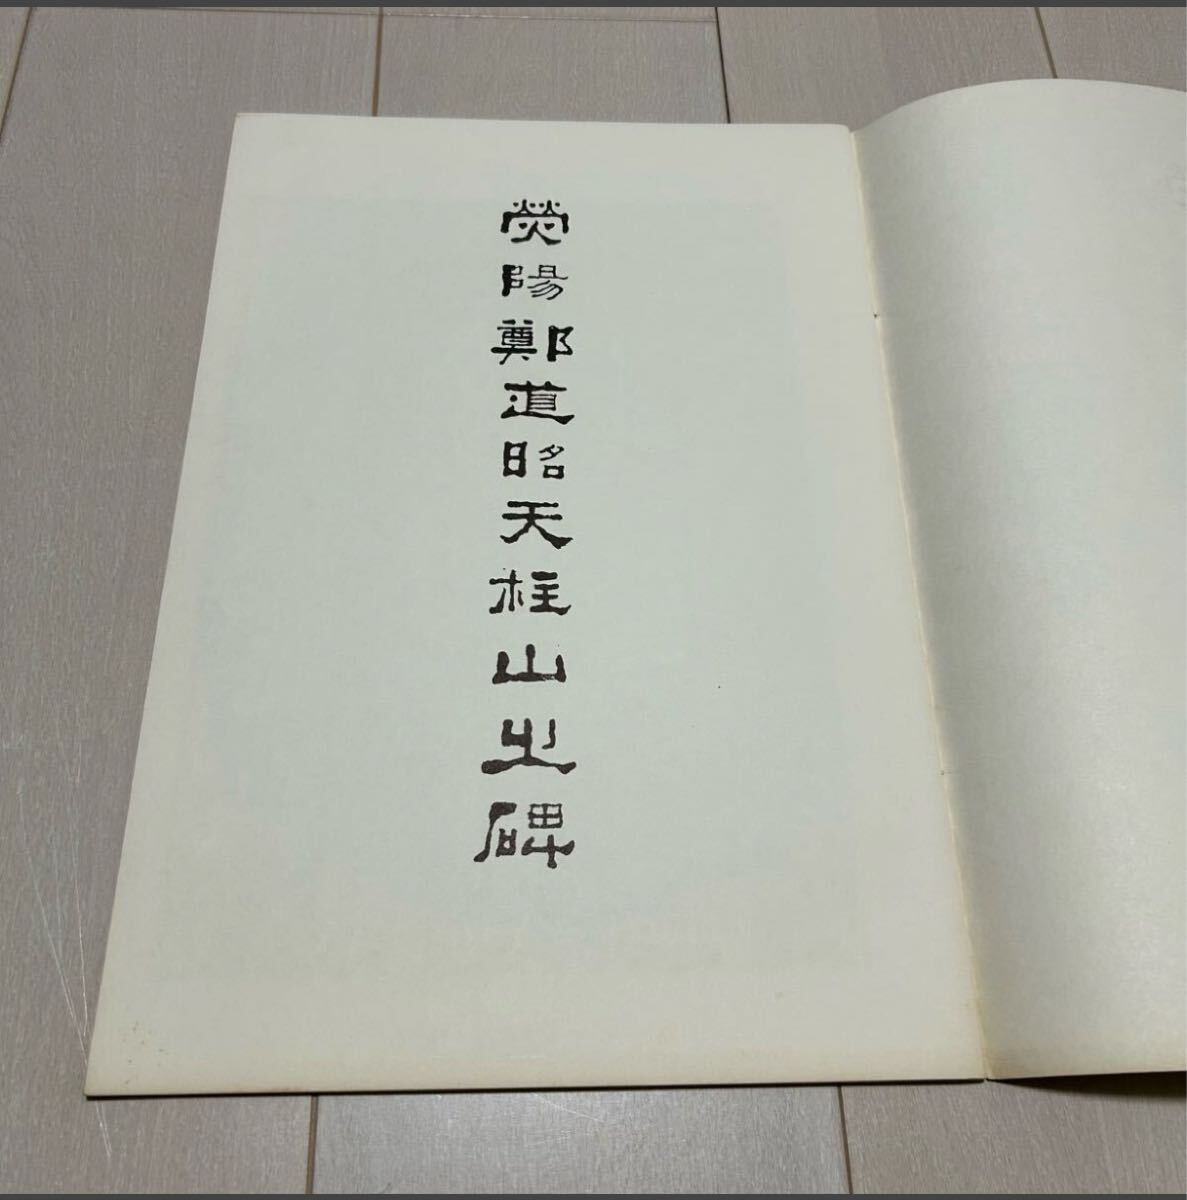 熒陽鄭道昭天柱山之碑